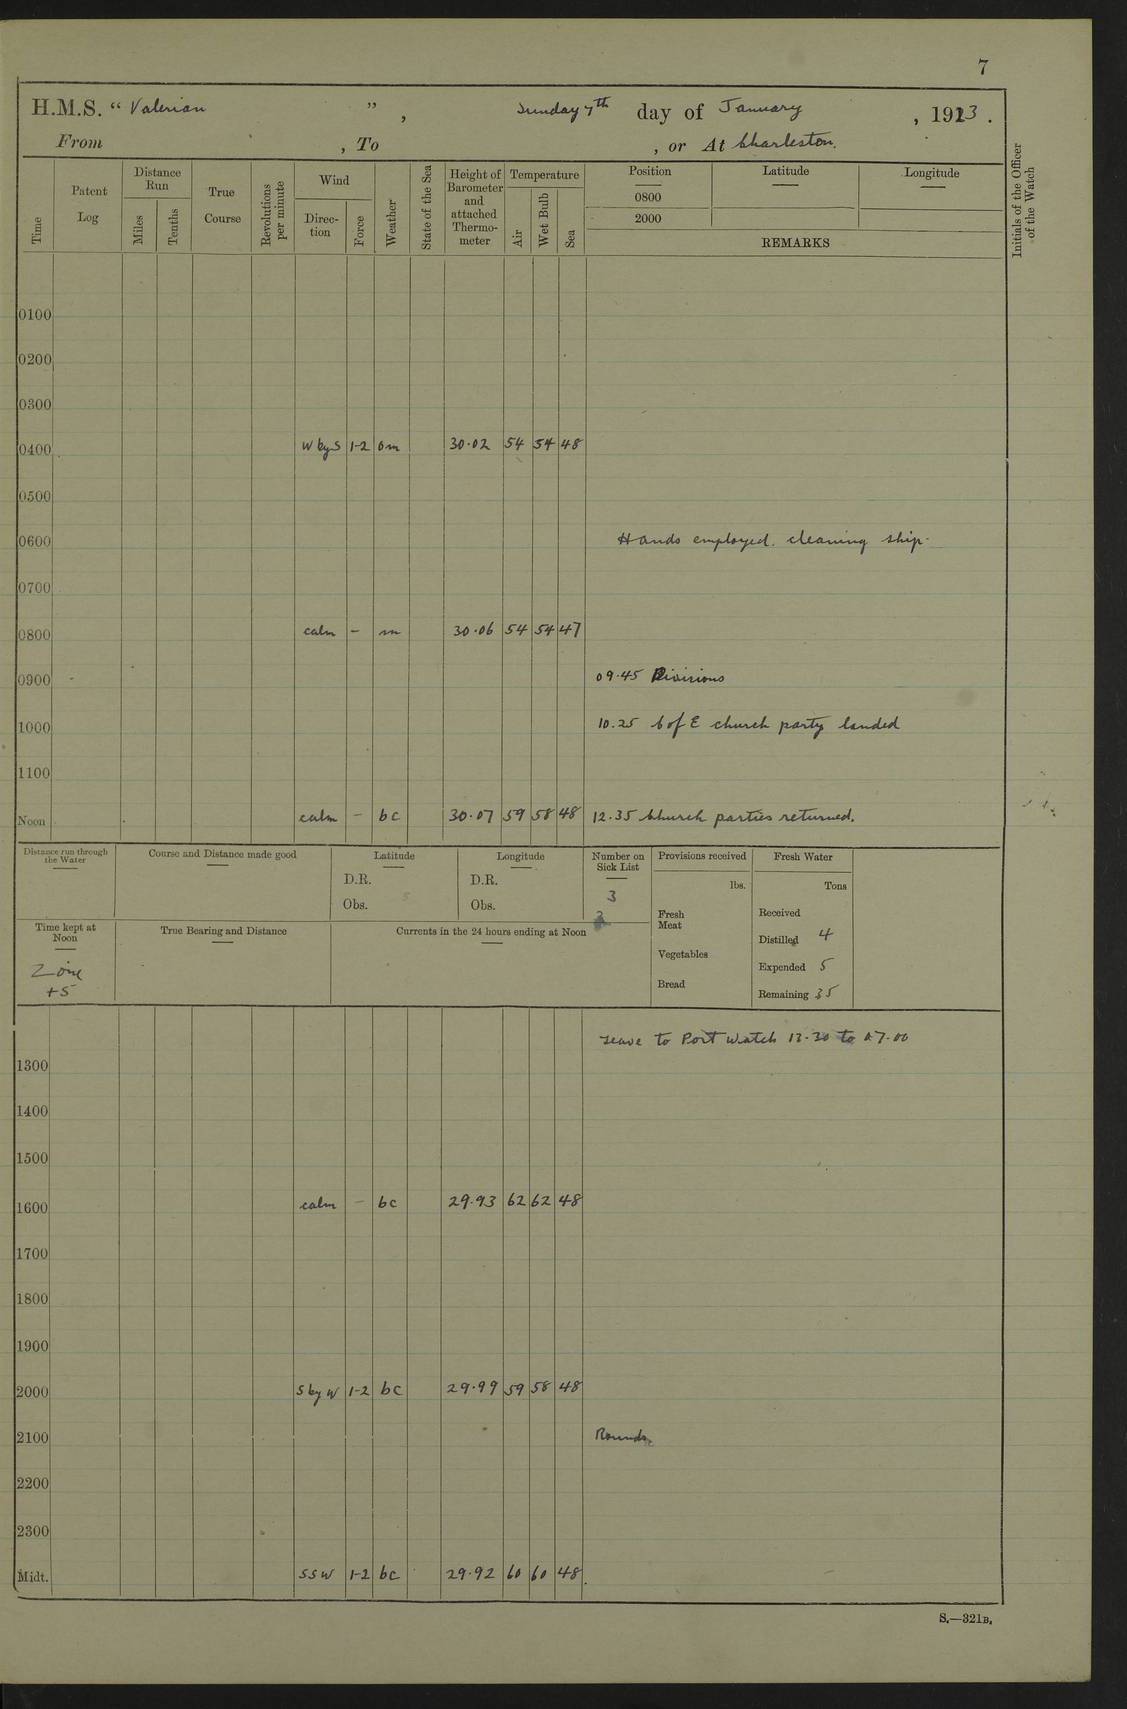 7
H.M.S. “ Valerian ”, Sunday 7th day of January , 1923 .
From , To , or At Charleston.
Time
Patent Log
Distance Run
Miles
Tenths
True Course
Revolutions per minute
Wind
Direc-tion
Force
Weather
State of the Sea
Height of Barometer and attached Thermo-meter
Temperature
Air
Wet Bulb
Sea
Position
Latitude
Longitude
0800
2000
REMARKS
Initials of the Officer of the Watch
0100
0200
0300
0400 W by S 1-2 om 30.02 54 54 48
0500
0600 Hands employed cleaning ship.
0700
0800 calm - m 30.06 54 54 47
0900 09.45 Divisions
1000 10.25 C of E church party landed
1100
Noon calm - bc 30.07 59 58 48 12.35 Church parties returned.
Distance run through the Water
Course and Distance made good
Latitude
D.R.
Obs.
Longitude
D.R.
Obs.
Number on Sick List
3
Provisions received
lbs.
Fresh Meat
Vegetables
Bread
Fresh Water
Tons
Received
Distilled 4
Expended 5
Remaining 35
Time kept at Noon
Zone
+5
True Bearing and Distance
Currents in the 24 hours ending at Noon
Leave to Port Watch 13.30 to 07.00
1300
1400
1500
1600 calm - bc 29.93 62 62 48
1700
1800
1900
2000 S by W 1-2 bc 29.99 59 58 48
2100 Rounds.
2200
2300
Midt. SSW 1-2 bc 29.92 60 60 48
S.—321B.